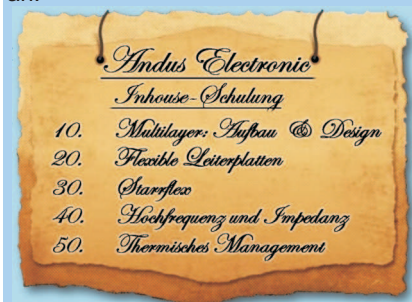 Andus Electronic
Inhouse-Schulung
10. Multilayer: Aufbau & Design
20. Flexible Leiterplatten
30. Starrflex
40. Hochfrequenz und Impedanz
50. Thermisches Management